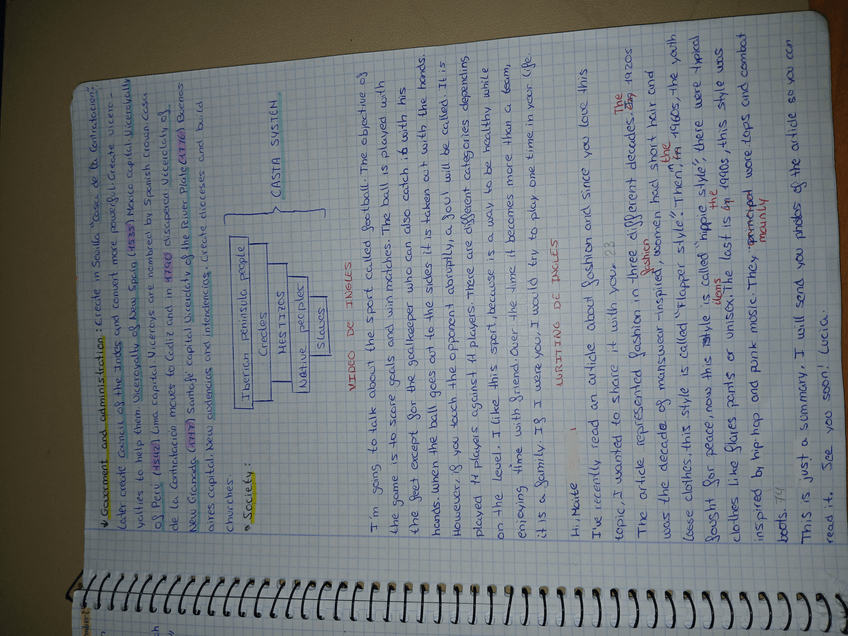 ↓ Goverment and administration: Create in Sevilla "Casa de la Contratación".
Later create Council of the Indies and convert more powerful. Create Vicero-
yalties to help them. Viceroyalty of New Spain (1535) Mexico capital. Viceroyalty
of Peru (1542) Lima capital. Viceroys are nombred by Spanish Crown. Casa
de la Contratación moves to Cadiz and in 1790 disapear. Viceroyalty of
New Granada (1717) Santafé capital. Viceroyalty of the River Plate (1776) Buenos
aires capital. New audencias and intendencias. Create dioceses and build
churches.
• Society:
Iberian peninsula people
Creoles
MESTIZOS
Native peoples
Slaves
CASTA SYSTEM
VIDEO DE INGLÉS
I'm going to talk about the sport called football. The objective of
the game is to score goals and win matches. The ball is played with
the feet except for the goalkeeper who can also catch it with his
hands. When the ball goes out to the sides it is taken out with the hands.
However, if you touch the opponent abruptly, a foul will be called. It is
played 11 players against 11 players. There are different categories depending
on the level. I like this sport because is a way to be healthy while
enjoying time with friend. Over the time it becomes more than a team,
it is a family. If I were you, I would try to play one time in your life.
WRITING DE INGLÉS
Hi, Monte
I've recently read an article about fashion and since you love this
topic, I wanted to share it with you. 23
The article represented fashion in three different decades. The 1920s
was the decade of manswear-inspired fashion, women had short hair and
loose clothes, this style is called "Flapper style". Then, in the 1960s, the youth
fought for peace, now this style is called "hippie style", there were typical
clothes items like flares pants or unisex. The last is the 1990s, this style was
inspired by hip-hop and punk music. They principal mainly wore tops and combat
boots. 74
This is just a summary. I will send you photos of the article so you can
read it. See you soon! Lucía.